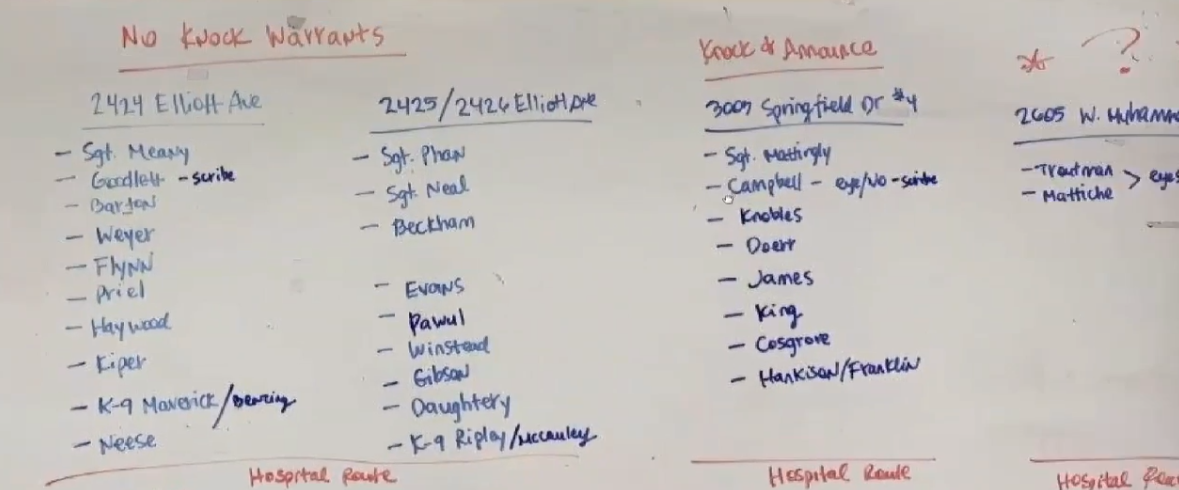 No Knock Warrants
2424 Elliott Ave
- Sgt. Meany
- Goodlett - scribe
- Barton
- Weyer
- Flynn
- Priel
- Haywood
- Kiper
- K-9 Maverick/Bearing
- Neese
2425/2426 Elliott Ave
- Sgt. Phan
- Sgt. Neal
- Beckham
- Evans
- Pawul
- Winstead
- Gibson
- Daughtery
- K-9 Ripley/McCauley
Hospital Route
Knock & Announce
3003 Springfield Dr #4
- Sgt. Mattingly
- Campbell - eye/vo - scribe
- Knobles
- Doerr
- James
- King
- Cosgrove
- Hankison/Franklin
Hospital Route
* ?
2605 W. Muhamma
- Trautman
- Mattiche > eyes
Hospital